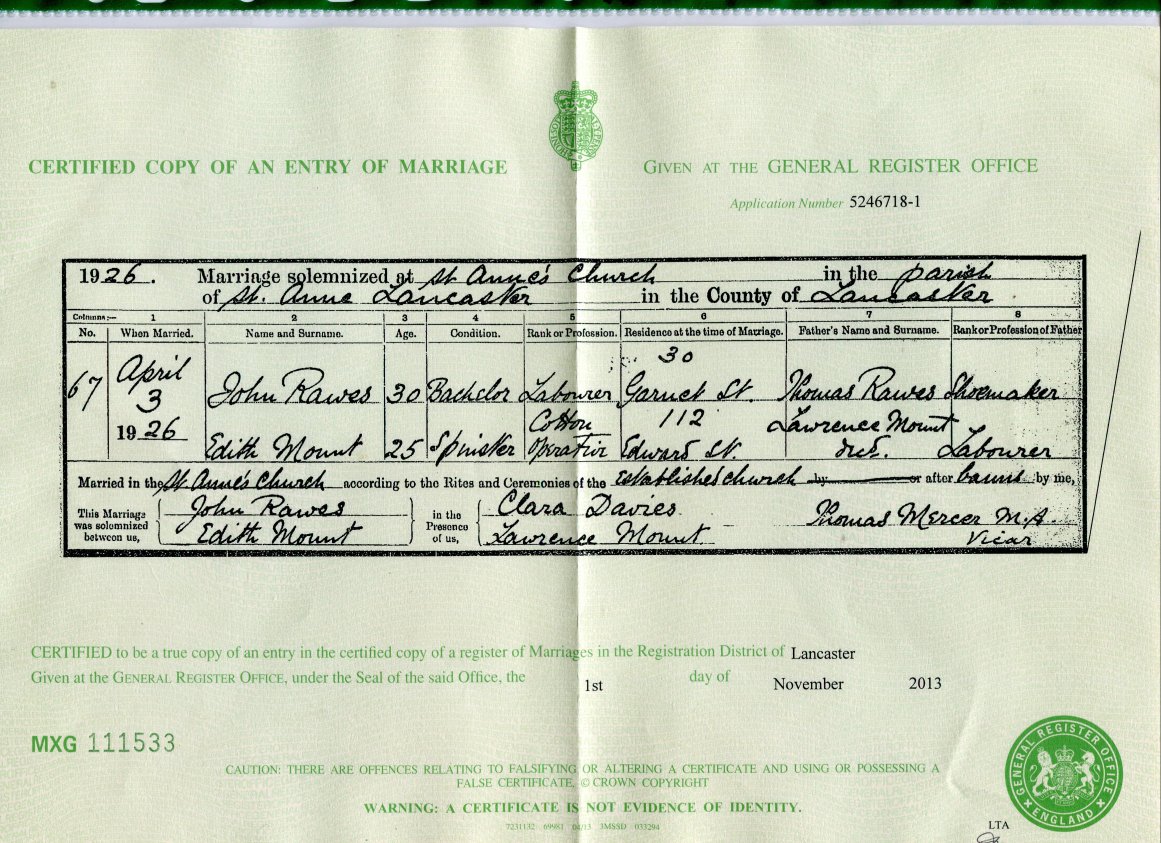 CERTIFIED COPY OF AN ENTRY OF MARRIAGE
GIVEN AT THE GENERAL REGISTER OFFICE
Application Number 5246718-1
1926. Marriage solemnized at St. Anne's Church in the parish
of St. Anne Lancaster in the County of Lancaster
Columns:— 1 2 3 4 5 6 7 8
No. When Married. Name and Surname. Age. Condition. Rank or Profession. Residence at the time of Marriage. Father's Name and Surname. Rank or Profession of Father
67 April 3 1926 John Rawes 30 Bachelor Labourer 30 Garnet St. Thomas Rawes Shoemaker
Edith Mount 25 Spinster Cotton Operative 112 Edward St. Lawrence Mount decd. Labourer
Married in the St Anne's Church according to the Rites and Ceremonies of the Established Church by or after banns by me,
This Marriage was solemnized between us, John Rawes Edith Mount in the Presence of us, Clara Davies Lawrence Mount Thomas Mercer M.A. Vicar
CERTIFIED to be a true copy of an entry in the certified copy of a register of Marriages in the Registration District of Lancaster
Given at the GENERAL REGISTER OFFICE, under the Seal of the said Office, the 1st day of November 2013
MXG 111533
CAUTION: THERE ARE OFFENCES RELATING TO FALSIFYING OR ALTERING A CERTIFICATE AND USING OR POSSESSING A
FALSE CERTIFICATE, © CROWN COPYRIGHT
WARNING: A CERTIFICATE IS NOT EVIDENCE OF IDENTITY.
7231132 69981 04/13 3MSSD 033294
GENERAL REGISTER OFFICE
ENGLAND
LTA